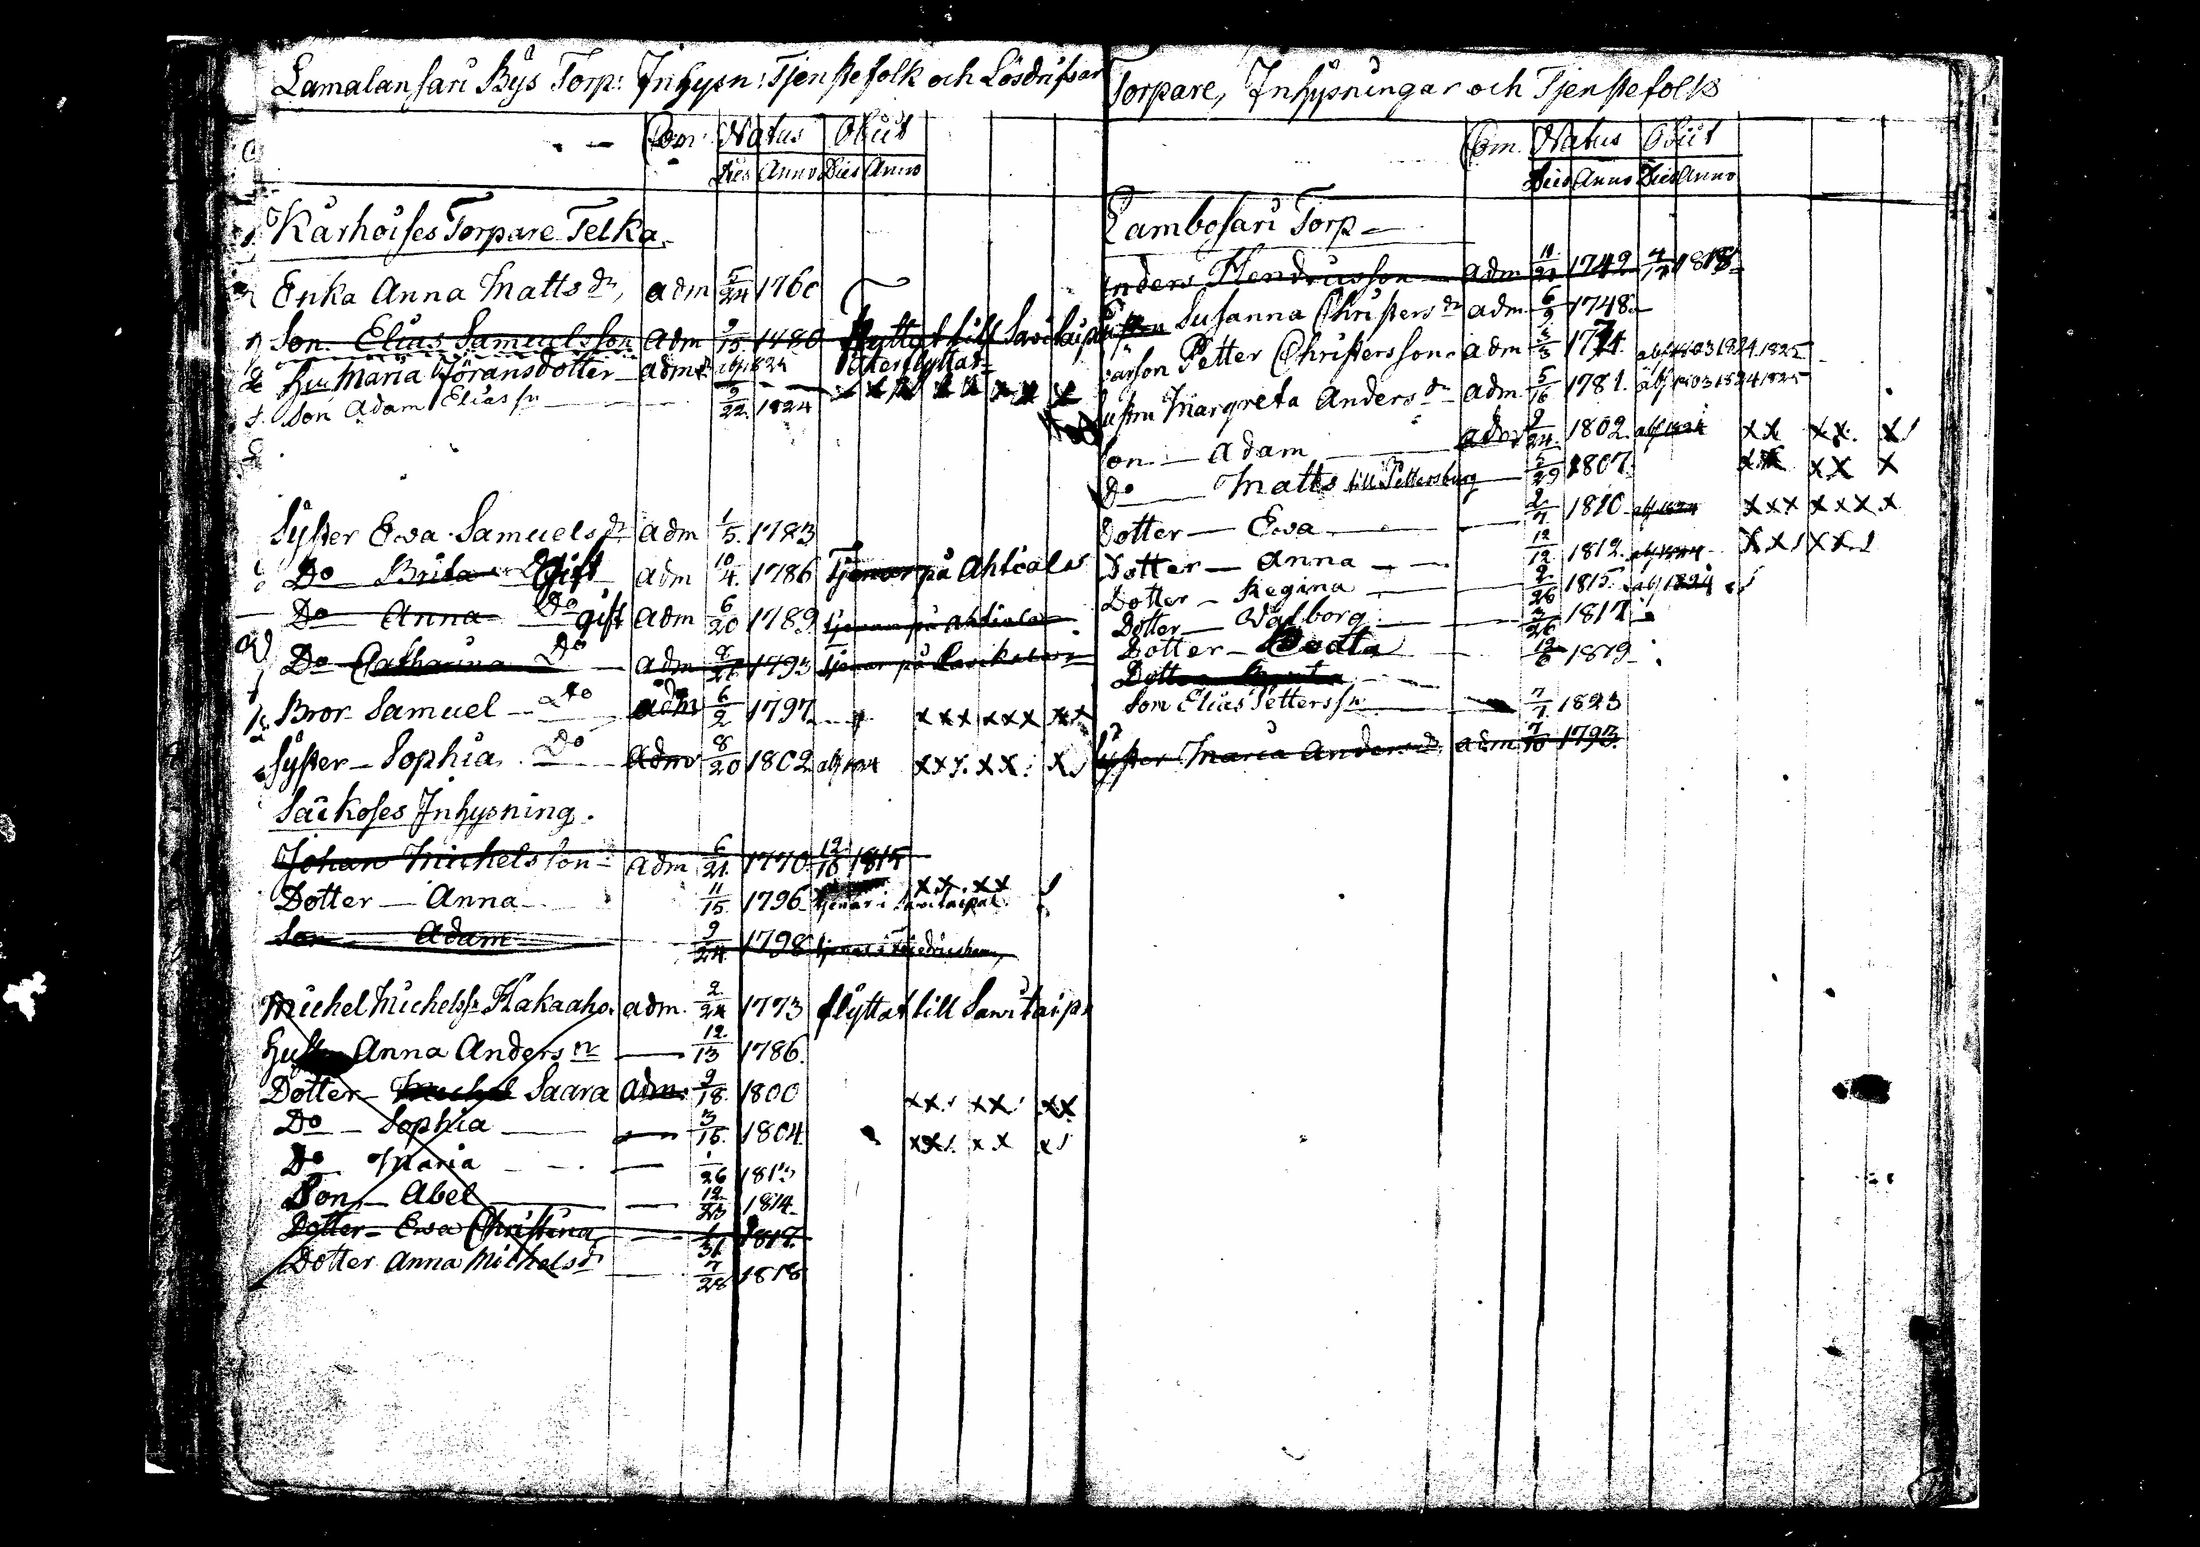 Lamalansari Bys Torp: Inhysn: Tjenstefolk och Lösdrifvar
Com: Natus Obiit
Dies Anno Dies Anno
Karhoises Torpare Telka.
Enka Anna Matts dr, adm 5/24 1760
Son Elias Samuelsson adm 9/15 1780 flyttat till Savitaipal
Hu Maria Göransdotter adm återflyttat
Son Adam Elias sn 9/22 1824
Syster Ewa Samuels dr adm 1/5 1783
Do Brita gift adm 10/4 1786 Tjenar på Ahtiala
Do Anna Do gift adm 6/20 1789 tjenar på Ahtiala
Do Catharina Do adm 1793 tjenar på
Bror Samuel Do adm 6/2 1797 x x x x x x x x
Syster Sophia Do adm 8/20 1802 x x x x x
Saikoses Inhysning.
Johan Michelsson adm 6/21 1770 12/16 1815
Dotter Anna 11/15 1796 tjenar i Savitaipal x x x x
Son Adam 9/24 1798 tjenar i Fredrichsham
Michel Michelss. Hakaaho. adm. 2/24 1773 flyttat till Savitaipa
Hust Anna Anders dr 12/13 1786.
Dotter Michel Saara adm. 9/18 1800 x x x x x x
Do Sophia 3/15 1804 x x x x x
Do Maria 1/26 181
Son Abel 12/23 1814
Dotter Ewa Christina 1/31 1817
Dotter Anna Michelsdr 7/28 1818
Torpare, Inhysningar och Tjenstefolk
Com. Natus Obiit
Dies Anno Dies Anno
Lambosari Torp
Anders Hendricsson adm 11/21 1742 4/17 1818
Susanna Christers dr adm 6/9 1748
Petter Christersson adm 1774 abs 1803 1824 1825
ustru Margreta Anders dr adm 5/16 1781. abs 1803 1824 1825
on Adam adm 9/24 1802. abs 1824 x x x x x
Do Matts till Pettersburg 5/29 1807. x x x x x
Dotter Ewa 2/7 1810 abs 1824 x x x x x x x
Dotter Anna 12/12 1812. abs 1824 x x x x
Dotter Regina 2/26 1815. abs 1824
Dotter Walborg 3/26 1817
Dotter Beata 12/6 1819
Dotter
Son Elias Petterssn 7/7 1823
Syster Maria Anders dr adm 7/10 1793.